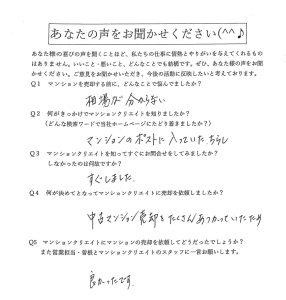 あなたの声をお聞かせください(^^♪
あなた様の喜びの声を聞くことほど、私たちの仕事に情熱とやりがいを与えてくれるもの
はありません。いいこと・悪いこと、どんなことでも結構です。ぜひ、あなた様の声をお聞
かせください。ご意見をお聞かせいただき、今後の活動に反映したいと考えております。
Q1 マンションを売却する前に、どんなことで悩んでましたか？
相場が分からない
Q2 何がきっかけでマンションクリエイトを知りましたか？
（どんな検索ワードで当社ホームページにたどり着きましたか？）
マンションのポストに入っていたちらし
Q3 マンションクリエイトを知ってすぐにお問合せをしてみましたか？
しなかったのは何故ですか？
すぐしました。
Q4 何が決めてとなってマンションクリエイトに売却を依頼しましたか？
中古マンション売却をたくさんあつかっていたため
Q5 マンションクリエイトにマンションの売却を依頼してどうだったでしょうか？
また営業担当・曽根とマンションクリエイトのスタッフに一言お願いします。
良かったです。